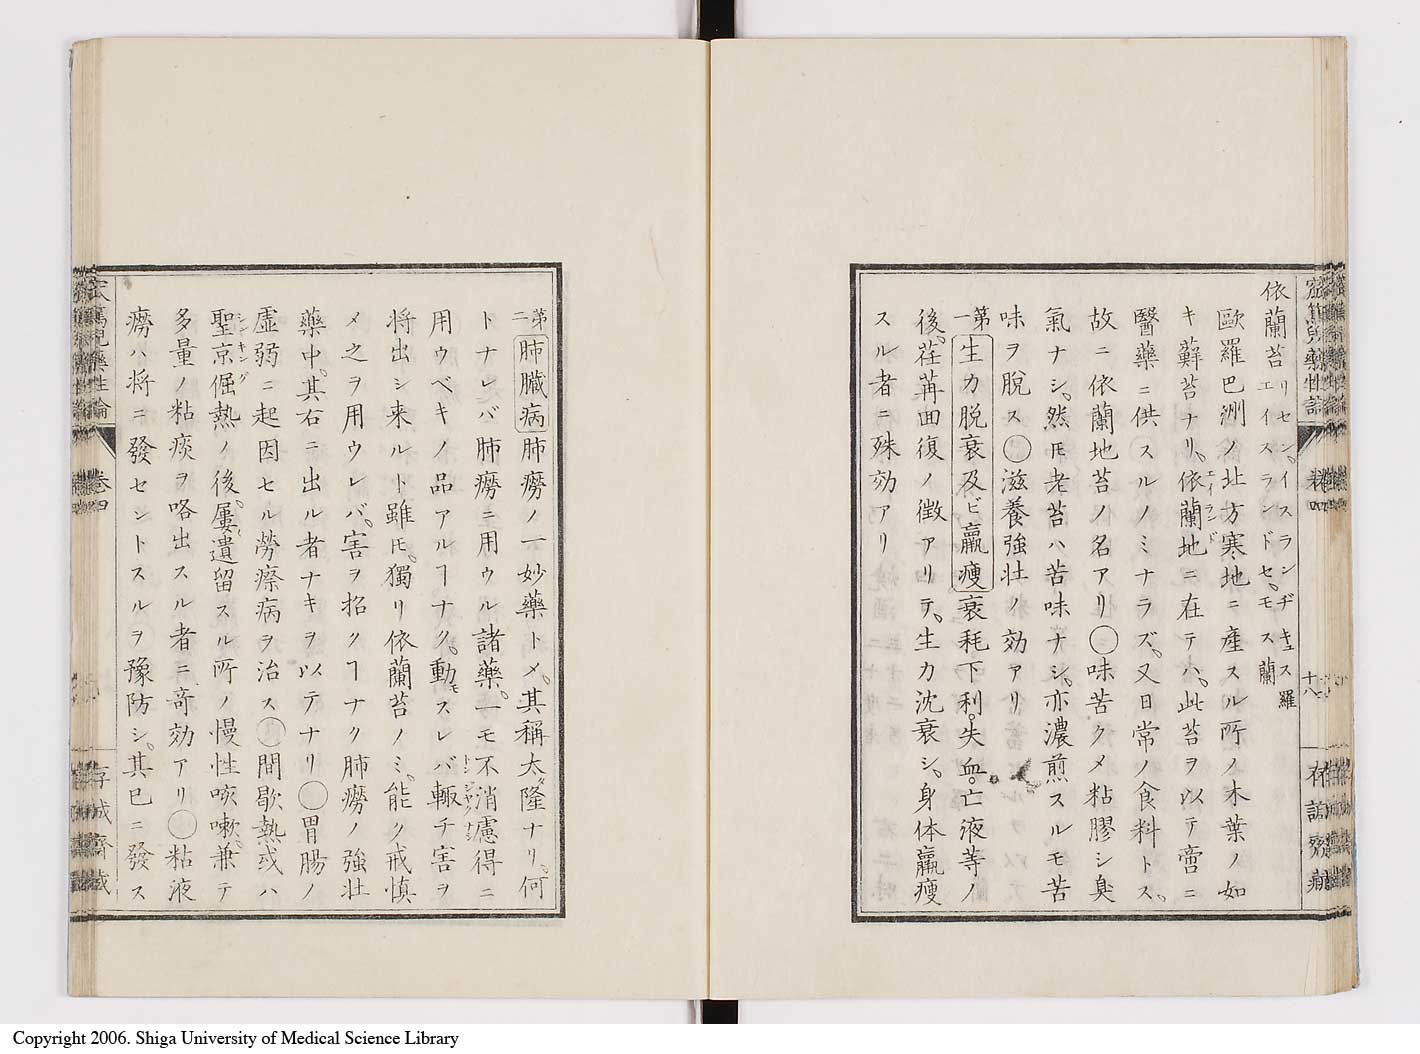 依蘭苔 リセン。イスランヂキュス 羅
エイスランドセ。モス 蘭
歐羅巴洲ノ北方寒地ニ産スル所ノ木葉ノ如
キ蘚苔ナリ。依蘭地エイランドニ在テハ。此苔ヲ以テ啻ニ
醫藥ニ供スルノミナラズ。又日常ノ食料トス。
故ニ依蘭地苔ノ名アリ〇味苦クメ粘膠シ臭
氣ナシ。然𪜈老苔ハ苦味ナシ。亦濃煎スルモ苦
味ヲ脱ス〇滋養強壮ノ効アリ
第一 生力脱衰及ビ羸瘦 衰耗下利。失血。亡液等ノ
後。荏苒囬復ノ徴アリテ。生力沈衰シ。身体羸瘦
スル者ニ殊効アリ
十八
第二 肺臓病 肺癆ノ一妙藥トメ。其稱太ダ隆ナリ。何
トナレバ肺癆ニ用ウル諸藥。一モ不消慮得ニ
用ウベキノ品アルヿナク。動モスレバ輙チ害ヲ
将出シ来ルト雖𪜈。獨リ依蘭苔ノミ。能ク戒慎
メ之ヲ用ウレバ。害ヲ招クヿナク肺癆ノ強壮
藥中。其右ニ出ル者ナキヲ以テナリ〇胃腸ノ
虚弱ニ起因セル勞瘵病ヲ治ス〇間歇熱或ハ
聖京倔熱シンキングノ後。屢遺留スル所ノ慢性咳嗽。兼テ
多量ノ粘痰ヲ咯出スル者ニ奇効アリ〇粘液
癆ハ将ニ發セントスルヲ豫防シ。其已ニ發ス
窊篤兒藥性論
巻四
存誠齋藏
Copyright 2006. Shiga University of Medical Science Library